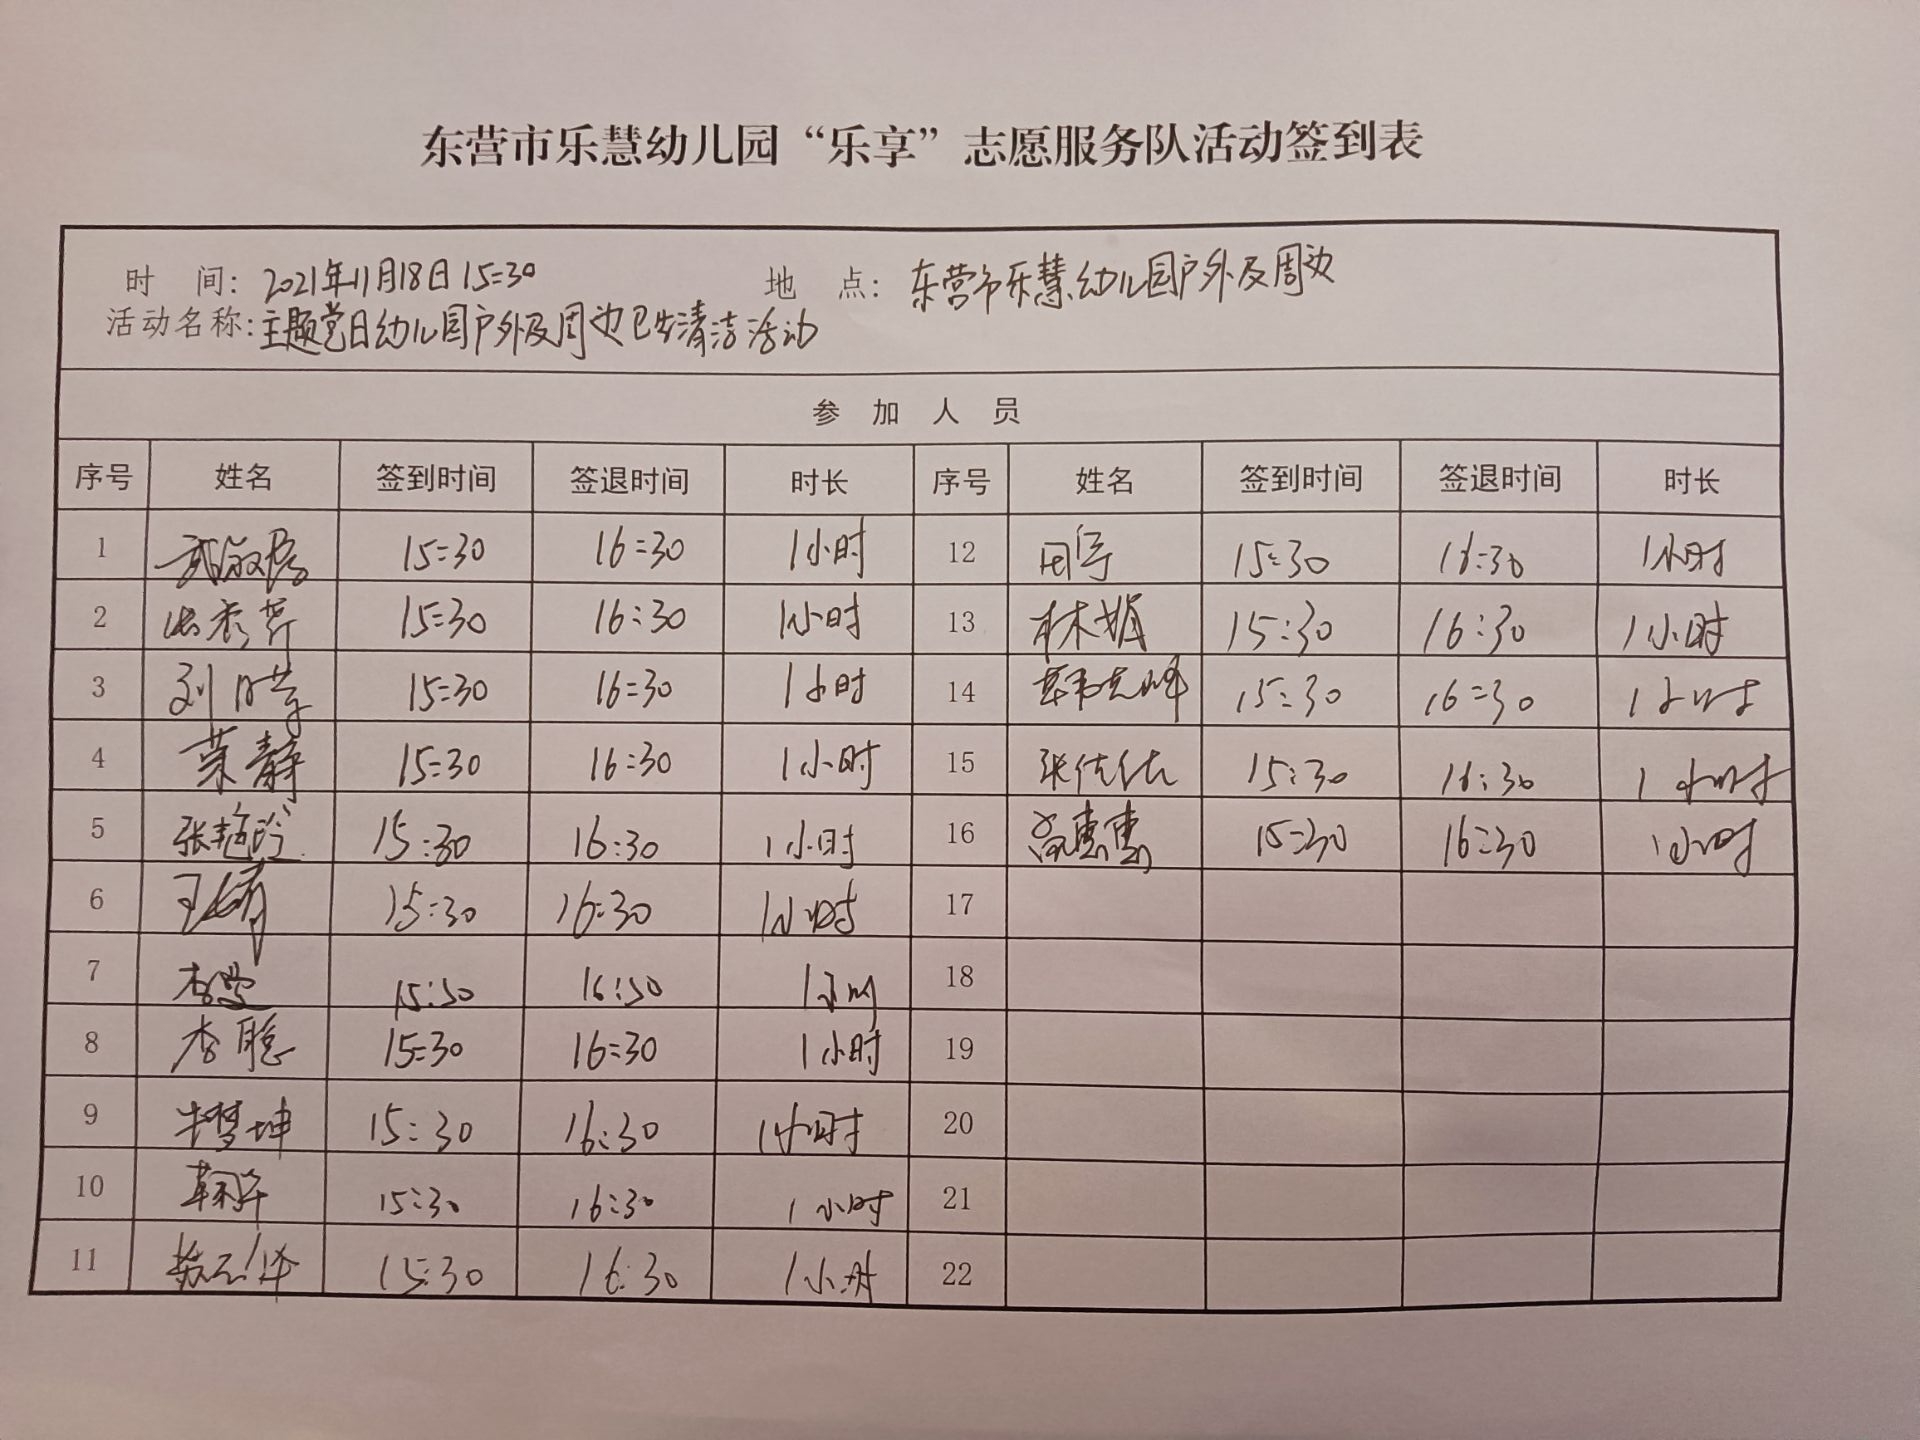 东营市乐慧幼儿园“乐享”志愿服务队活动签到表
时 间：2021年11月18日15:30 地 点：东营市乐慧幼儿园户外及周边
活动名称：主题党日幼儿园户外及周边卫生清洁活动
参 加 人 员
序号 姓名 签到时间 签退时间 时长 序号 姓名 签到时间 签退时间 时长
1 15:30 16:30 1小时 12 周宇 15:30 16:30 1小时
2 15:30 16:30 1小时 13 林娟 15:30 16:30 1小时
3 刘 15:30 16:30 1小时 14 15:30 16:30 1小时
4 荣静 15:30 16:30 1小时 15 张佳佳 15:30 16:30 1小时
5 张艳玲 15:30 16:30 1小时 16 高惠惠 15:30 16:30 1小时
6 王倩 15:30 16:30 1小时 17
7 15:30 16:30 1小时 18
8 李聪 15:30 16:30 1小时 19
9 牛梦坤 15:30 16:30 1小时 20
10 15:30 16:30 1小时 21
11 15:30 16:30 1小时 22